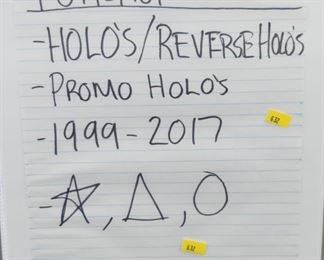 -HOLO'S/REVERSE HOLO'S
-PROMO HOLO'S
-1999-2017
632
-☆, △, ○
632